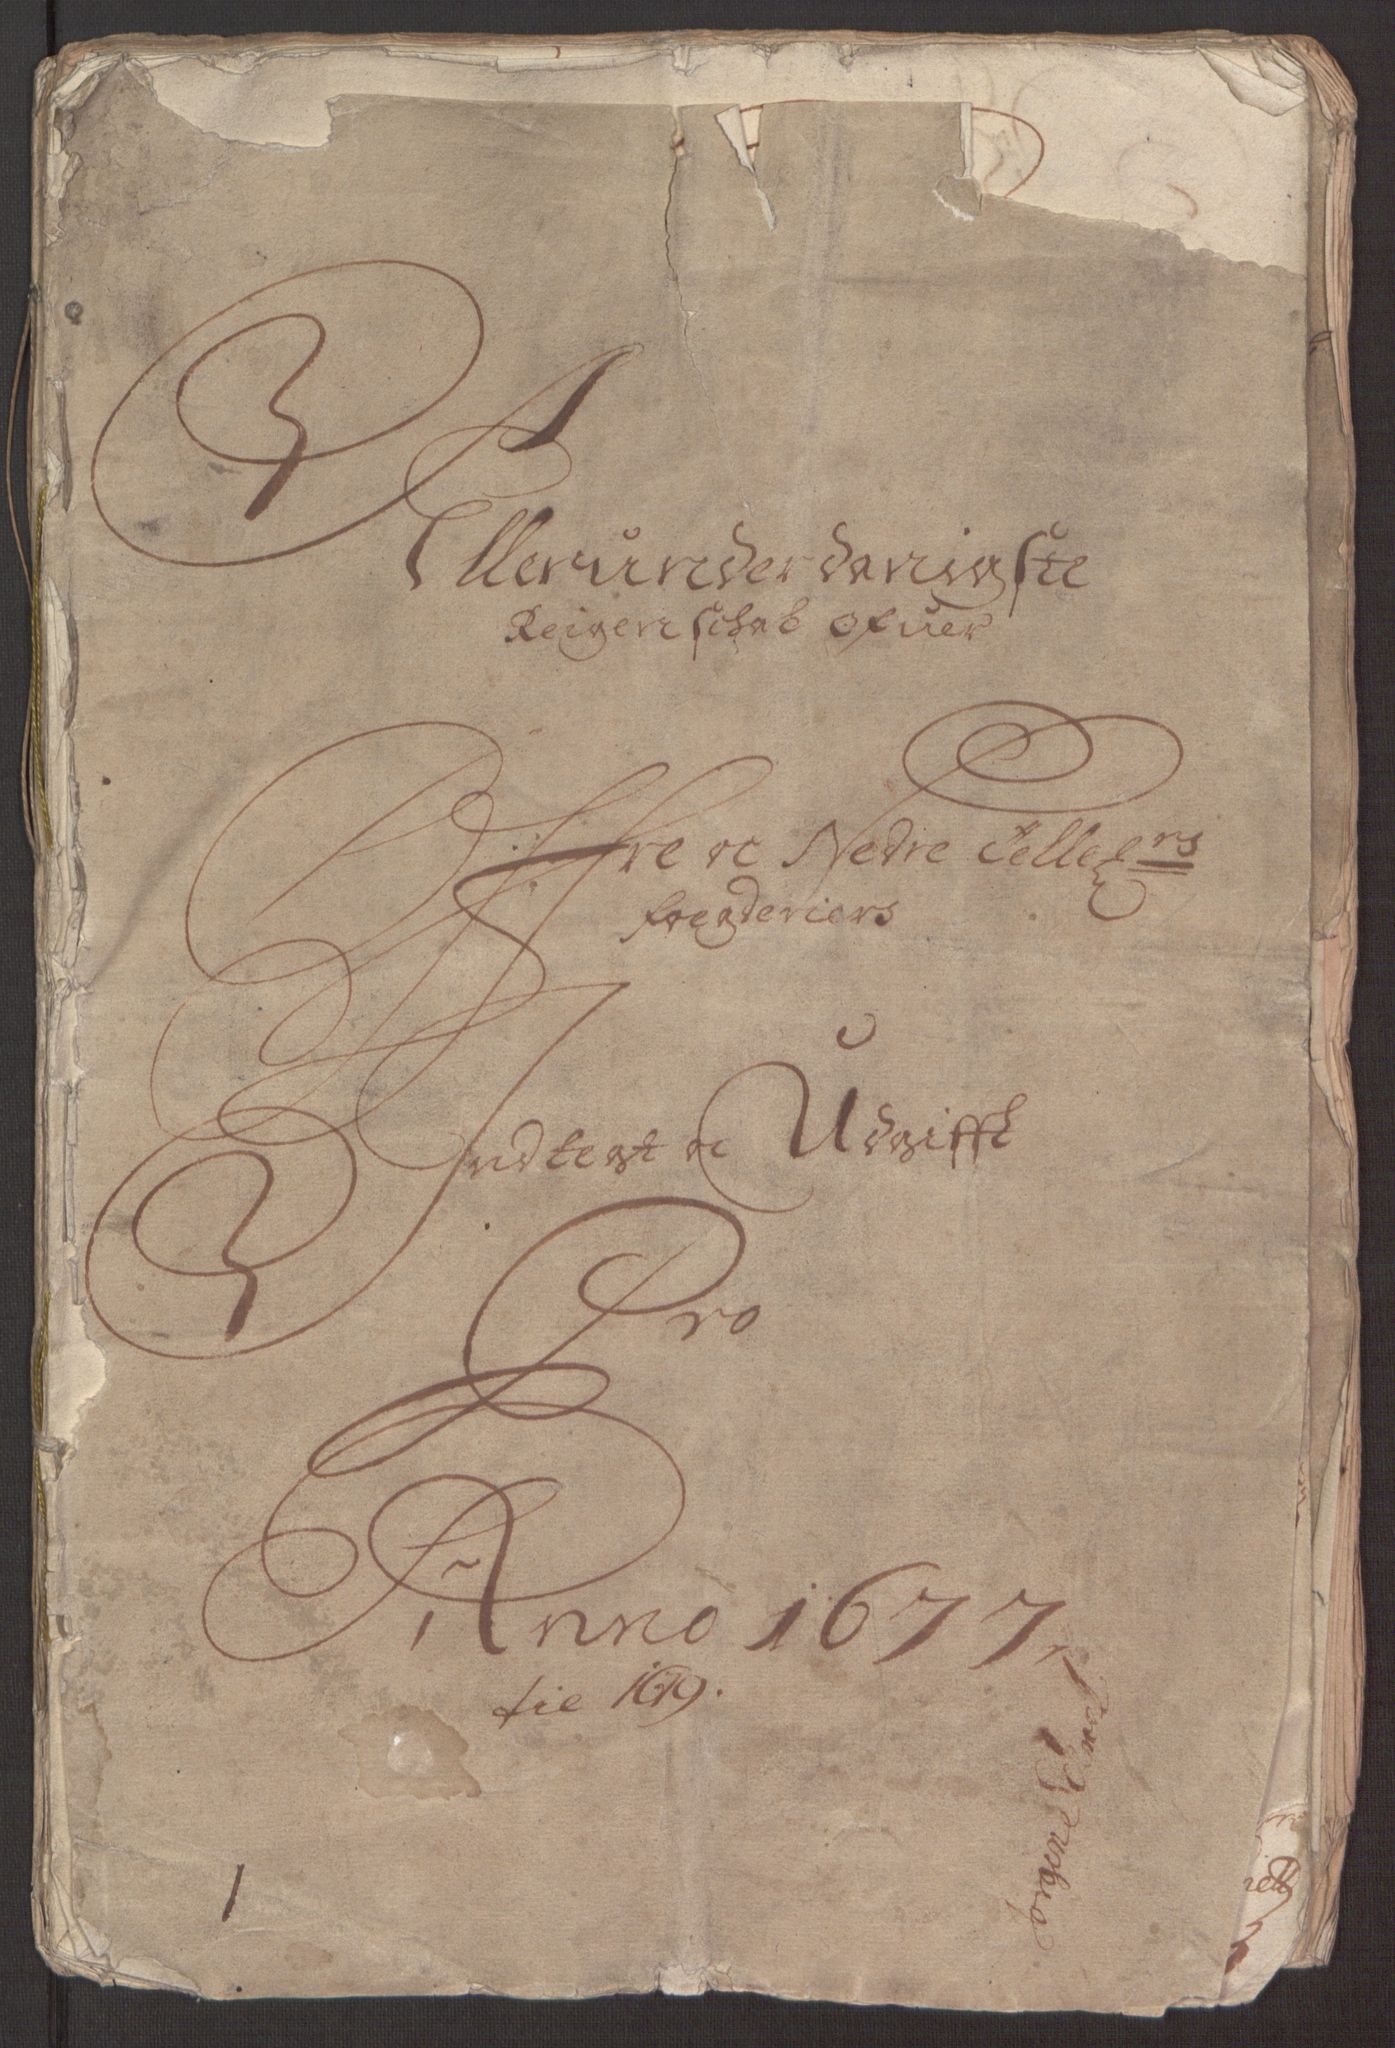 Allerunderdanigste
Reigenschab ofuer
Øfre oc Nedre Tellem̅rs
fougderiers
Indtegt oc Udgifft
Pro
Anno 1677
die 1679.
1